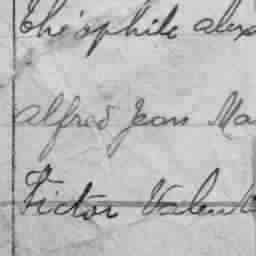 Théophile Alex
Alfred Jean Ma
Victor Valent